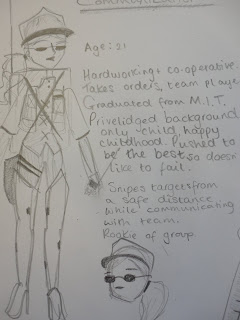 Age: 21
Hardworking + co-operative.
Takes orders, team playe
Graduated from M.I.T.
Priveledged background
only child, happy
childhood. Pushed to
be the best, so doesn't
like to fail.
Snipes targets from
a safe distance
while communicating
with team.
Rookie of group